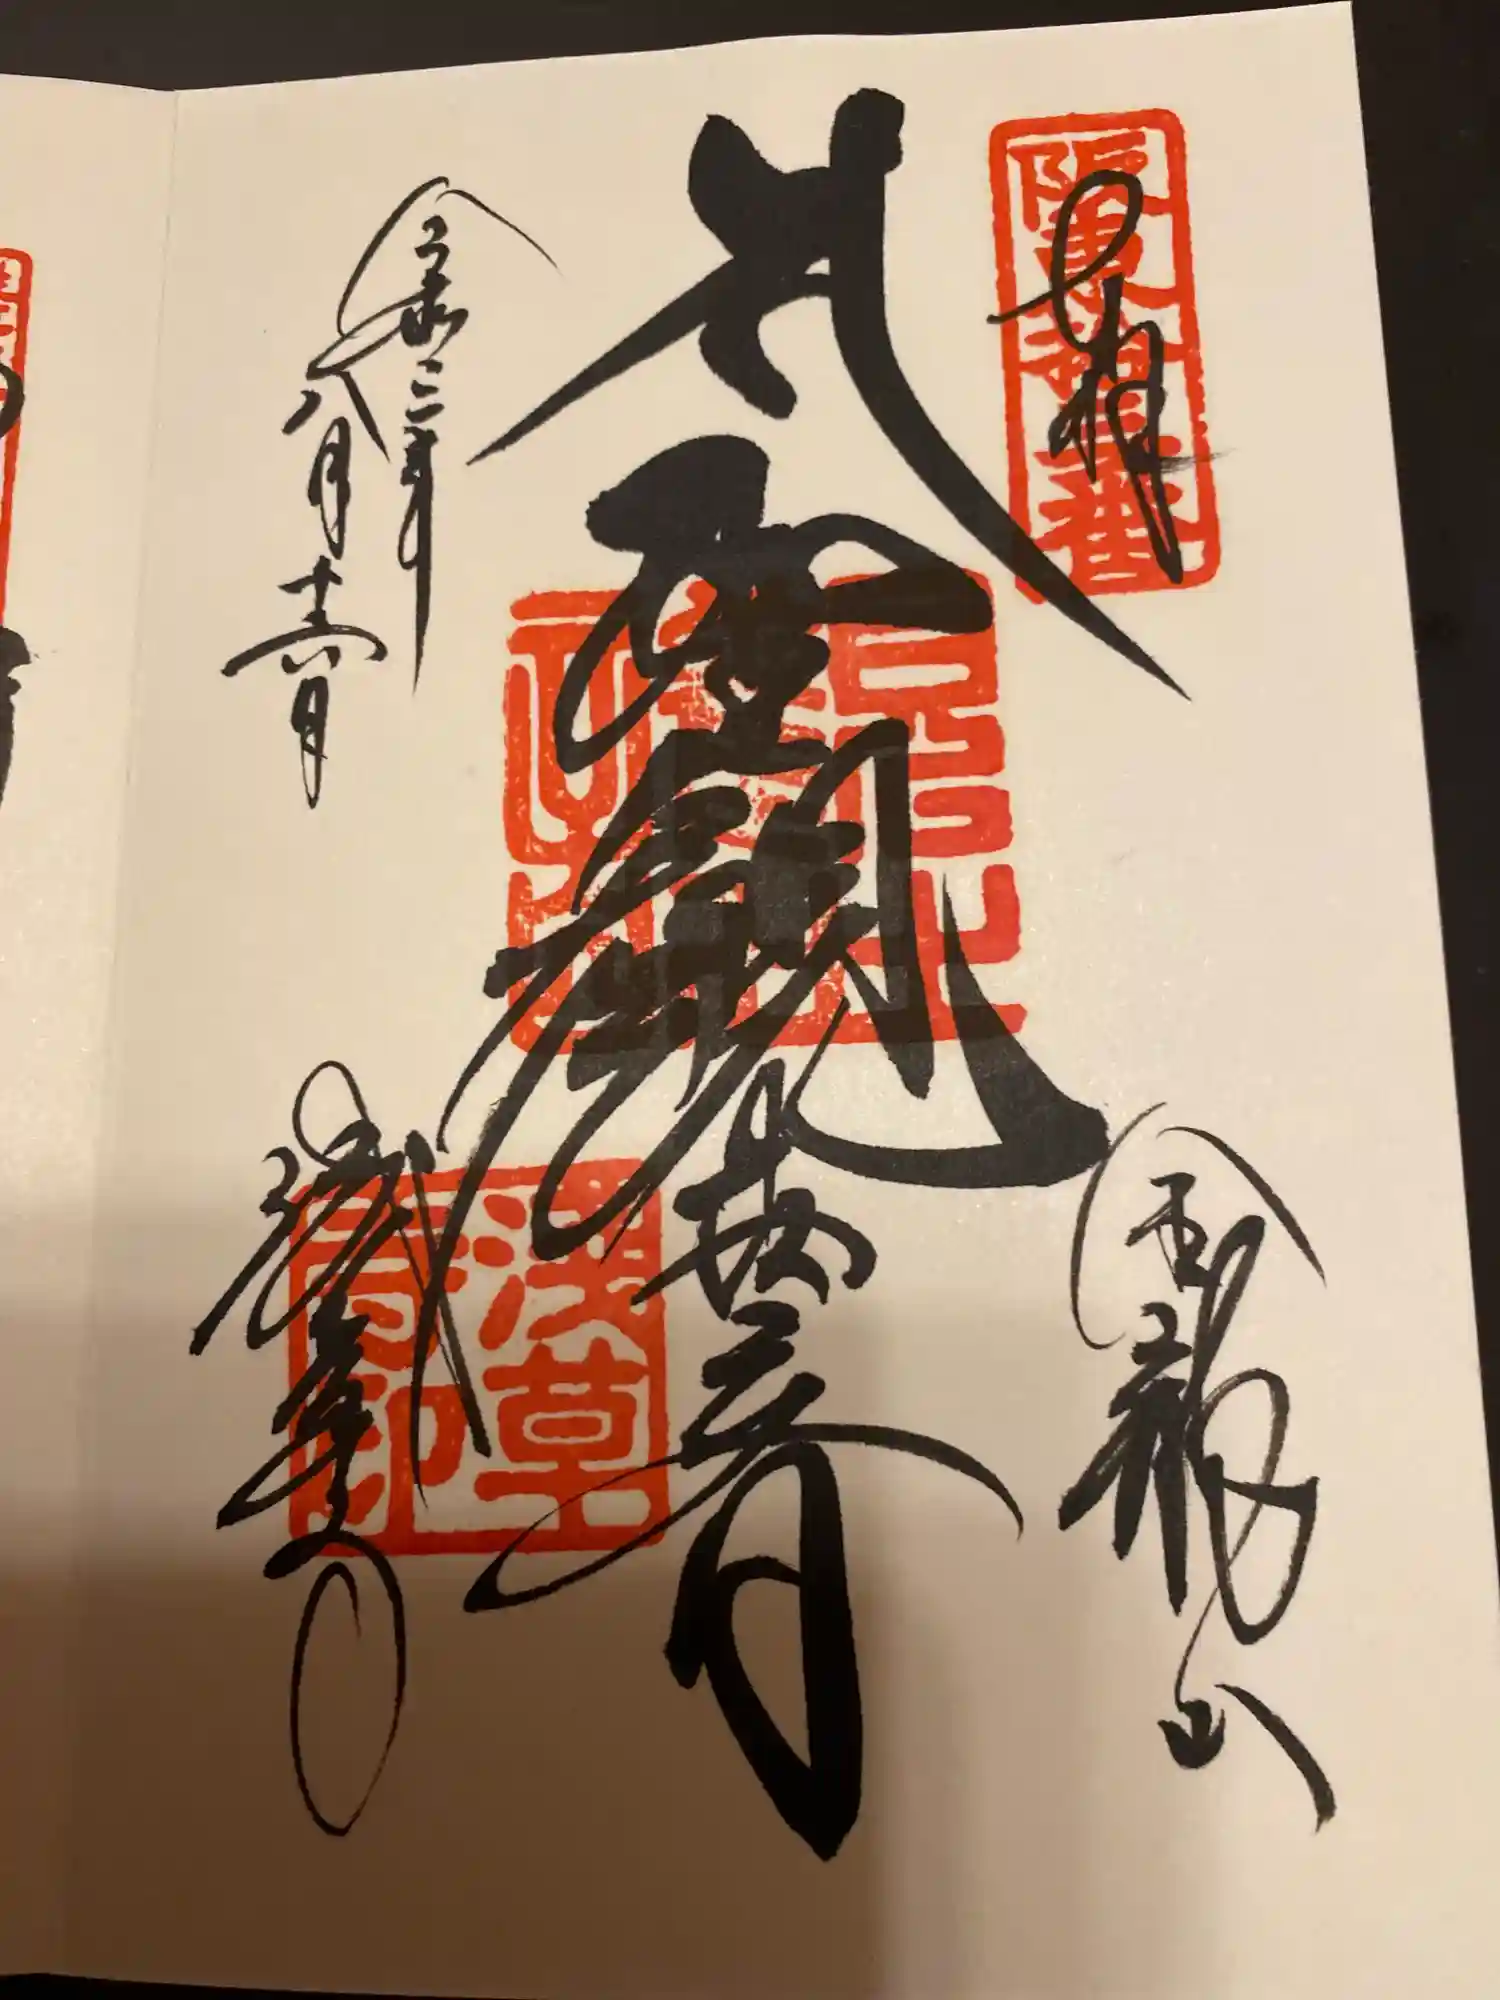 奉拝
阪東拾三番
大聖観世音
金龍山
浅草
寺印
令和二年
八月十六日
浅草寺